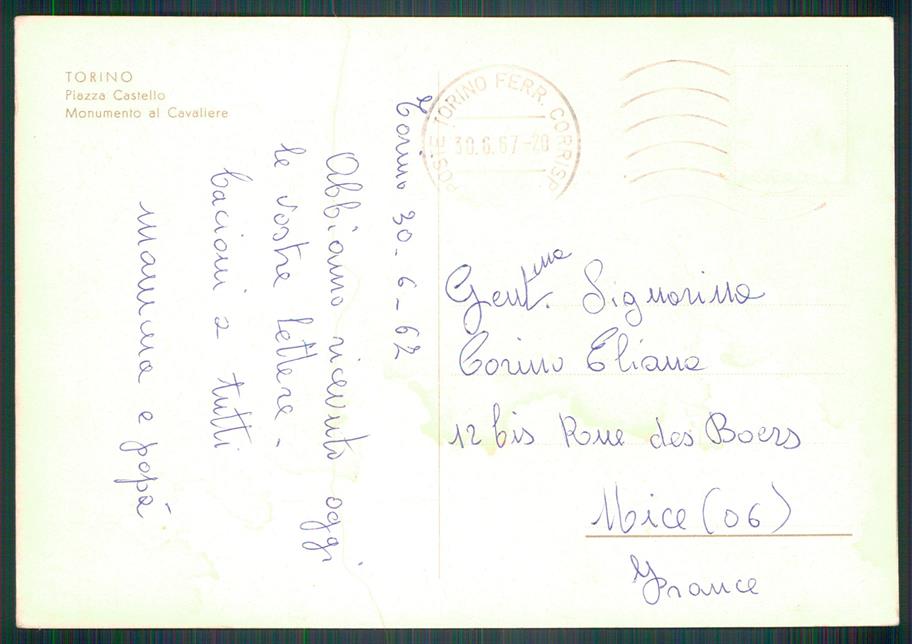 TORINO
Piazza Castello
Monumento al Cavaliere
POSTE TORINO FERR. CORRISP.
30.6.67-20
Torino 30-6-62
Abbiamo ricevuto oggi
le vostre lettere.
bacioni a tutti
mamma e papà
Gent.ma Signorina
Corino Eliana
12 bis Rue des Boers
Nice (06)
France